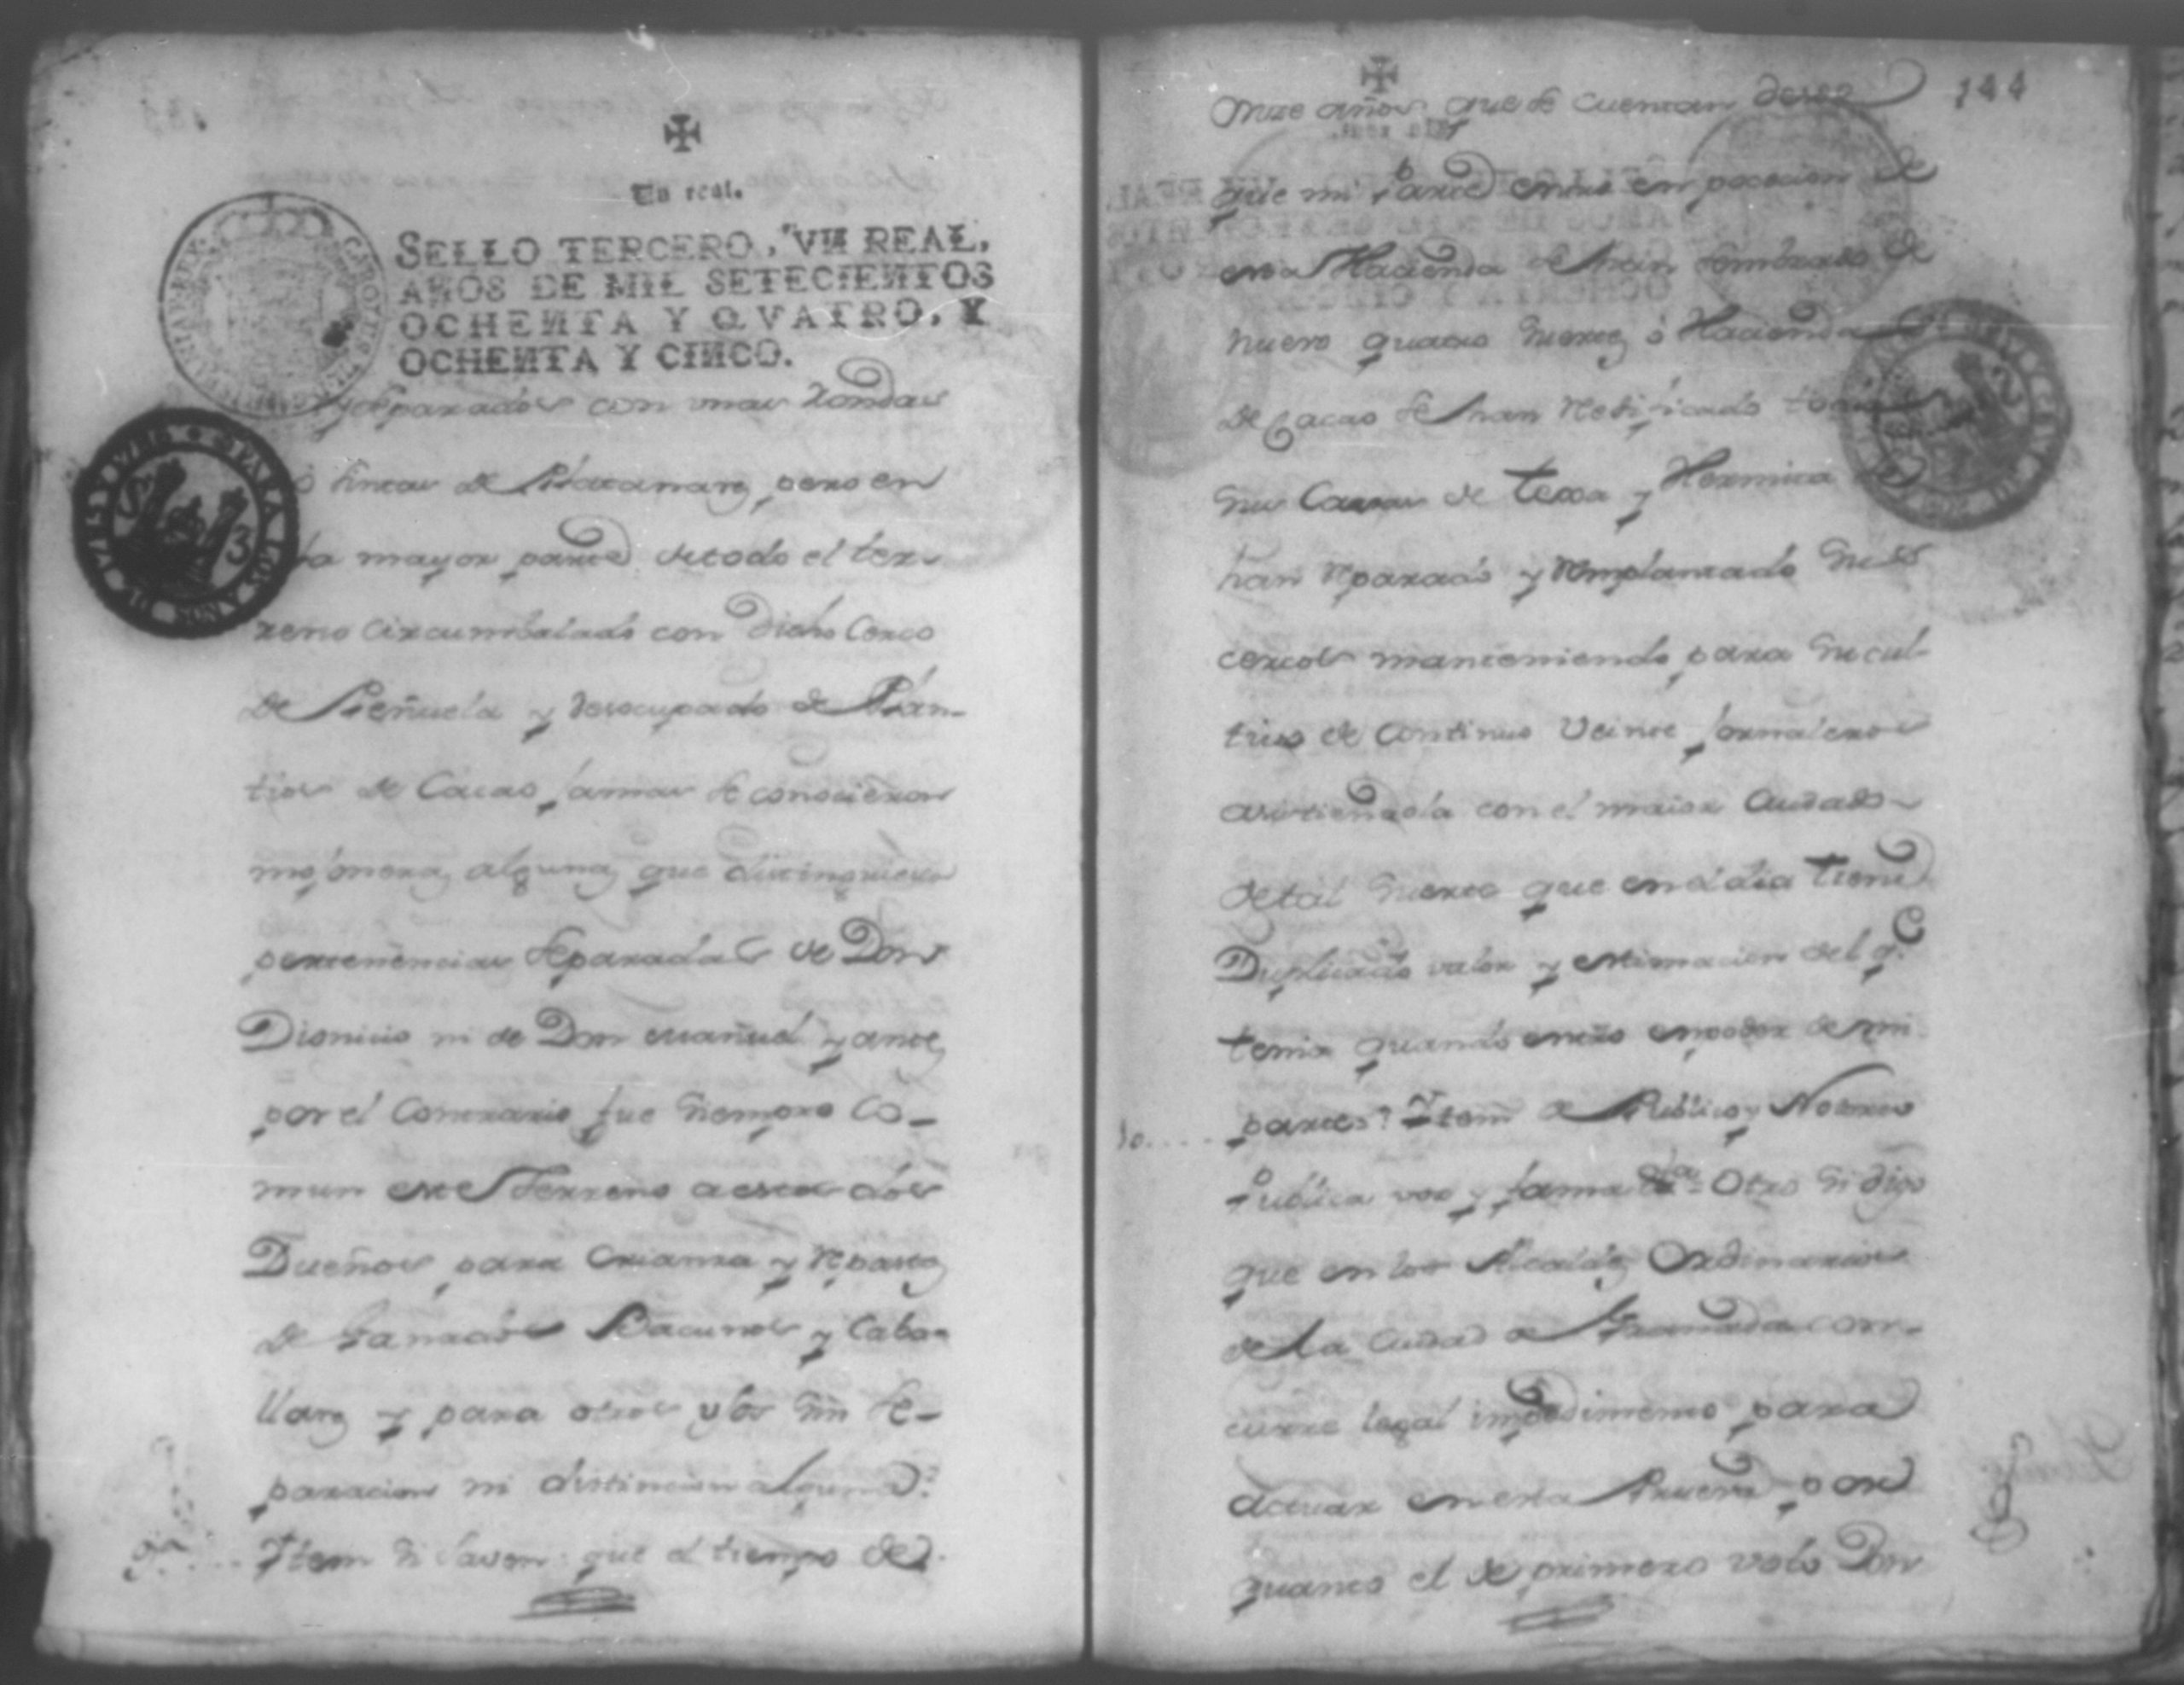 Un real.
SELLO TERCERO, VN REAL,
AÑOS DE MIL SETECIENTOS
OCHENTA Y QVATRO, Y
OCHENTA Y CINCO.
separados con unas Rondas
o lineas de Platanares, pero en
la mayor parte de todo el ter-
reno circumbalado con dicho Cerco
de Piñuela y desocupado de Plan-
tios de Cacao jamas se conocieron
mojoneras algunas que distinguiesen
pertenencias separadas de Don
Dionicio ni de Don Manuel y antes
por el Contrario fue siempre Co-
mun este Terreno a estos dos
Dueños para Crianza y repastos
de Ganados Bacunos y Caba-
llares y para otros usos sin se-
paracion ni distincion alguna?
9.a Ytem si saven que el tiempo de
PARA LOS AÑOS DE 1785 Y 1786
3
144
Onze años que se cuentan desde
que mi Parte entro en pocecion de
esta Hacienda se han sembrado de
nuevo quatro suertes o Haciendas
de Cacao se han redificado
sus Casas de texa y Hermita
han reparado y remplantado sus
cercos manteniendo para su cul-
tivo de Continuo Veinte jornaleros
asistiendola con el maior Cuidado
de tal suerte que en el dia tiene
Duplicado valor y estimacion del q.e
tenia quando entro en poder de mi
10 parte? Ytem de Publico y Notorio
Publica voz y fama &a = Otro si digo
que en los Alcaldes Ordinarios
de la Ciudad de Granada con-
curre legal impedimento para
actuar en esta Prueva por
quanto el de primero voto Don